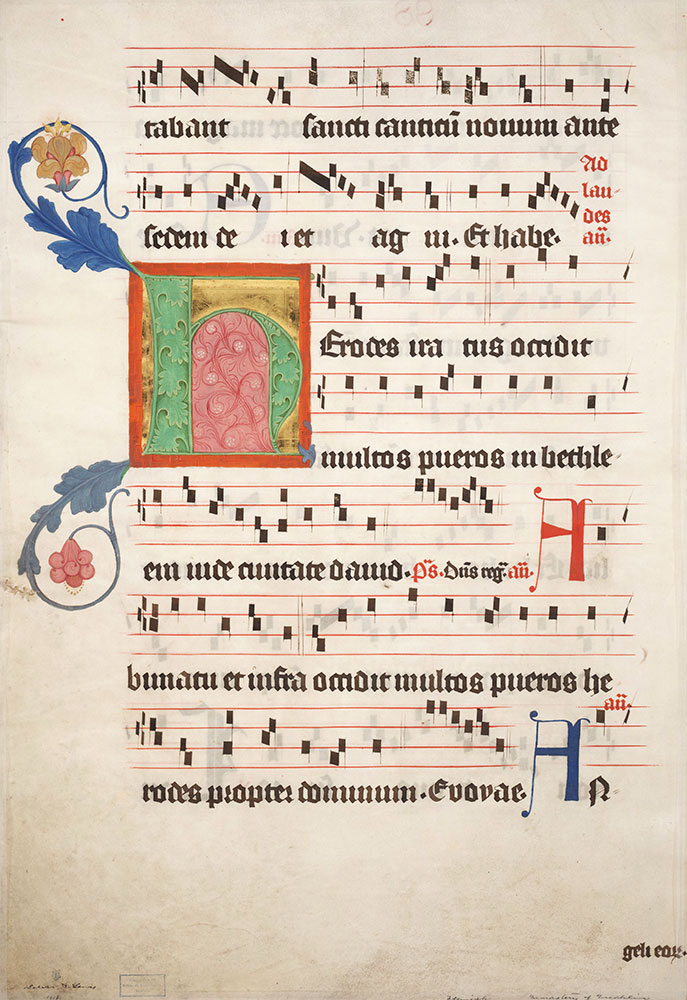 tabant sancti canticū novum ante
sedem de i et ag ni. Et habe.
Ad lau-
des
añ.
HErodes ira tus occidit
multos pueros in bethle
em iude civitate david. Ps. Dn̄s reg. añ. A
bimatu et infra occidit multos pueros he
añ.
rodes propter dominum. Evovae. A N
geli eoꝝ.